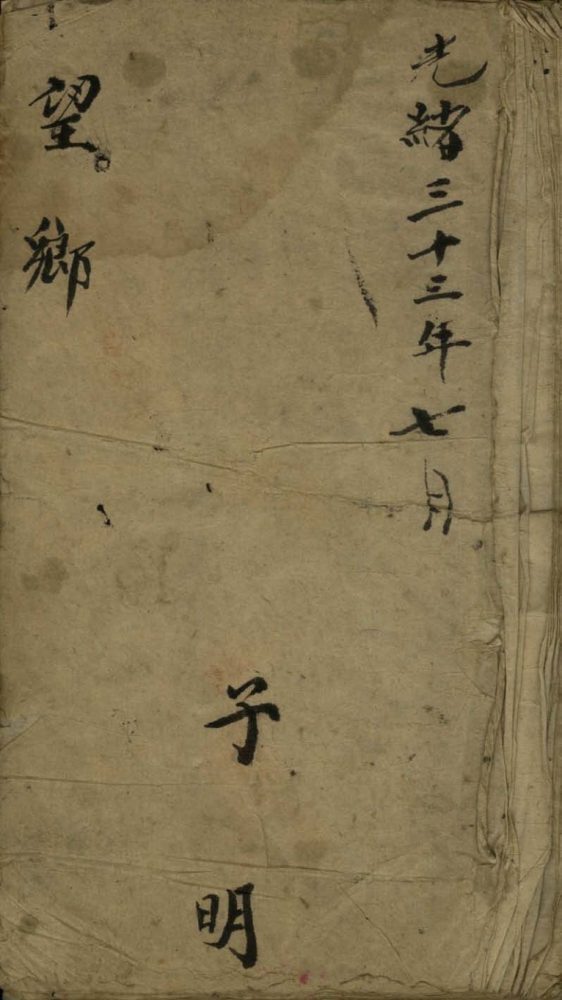 光緒三十三年七月
子明
望鄉